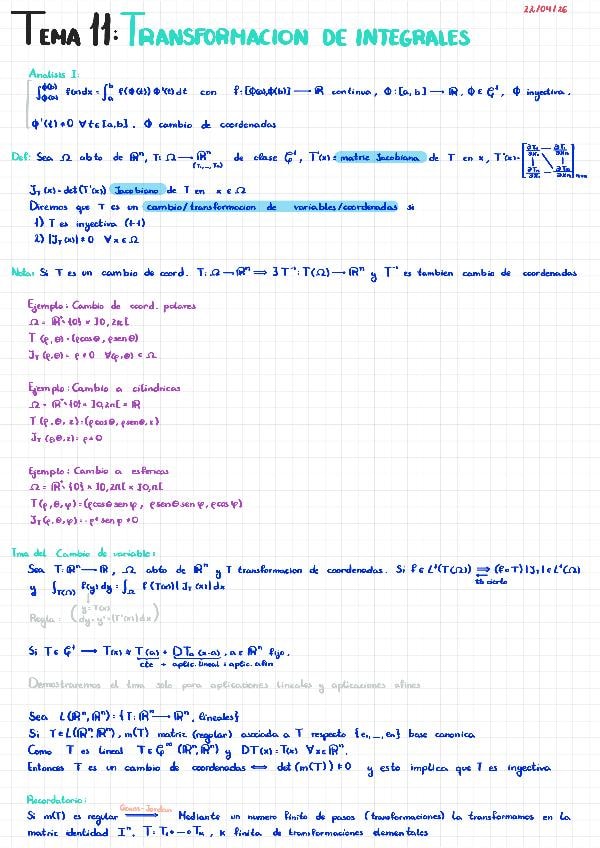 22/04/26
TEMA 11: TRANSFORMACION DE INTEGRALES
Analisis I:
∫_{ϕ(a)}^{ϕ(b)} f(x)dx = ∫_a^b f(ϕ(t)) ϕ'(t) dt con f: [ϕ(a),ϕ(b)] → ℝ continua, ϕ: [a,b] → ℝ, ϕ ∈ C¹, ϕ inyectiva.
ϕ'(t) ≠ 0 ∀t ∈ [a,b]. ϕ cambio de coordenadas
Def: Sea Ω abto de ℝⁿ, T: Ω → ℝⁿ de clase C¹, T'(x) = matriz Jacobiana de T en x, T'(x) =
(T₁,...,Tₙ)
J_T(x) = det(T'(x)) Jacobiano de T en x ∈ Ω
Diremos que T es un cambio/transformacion de variables/coordenadas si
1) T es inyectiva (1-1)
2) |J_T(x)| ≠ 0 ∀x ∈ Ω
Nota: Si T es un cambio de coord. T: Ω → ℝⁿ ⟹ ∃ T⁻¹: T(Ω) → ℝⁿ y T⁻¹ es tambien cambio de coordenadas
Ejemplo: Cambio de coord. polares
Ω = ℝ⁺\{0} × ]0, 2π[
T(ρ,θ) = (ρcosθ, ρsenθ)
J_T(ρ,θ) = ρ ≠ 0 ∀(ρ,θ) ∈ Ω
Ejemplo: Cambio a cilindricas
Ω = ℝ⁺\{0} × ]0,2π[ × ℝ
T(ρ, θ, z) = (ρcosθ, ρsenθ, z)
J_T(ρ,θ,z) = ρ ≠ 0
Ejemplo: Cambio a esfericas
Ω = ℝ⁺\{0} × ]0, 2π[ × ]0, π[
T(ρ, θ, φ) = (ρcosθ sen φ, ρsenθ sen φ, ρcos φ)
J_T(ρ, θ, φ) = -ρ² sen φ ≠ 0
Tma del Cambio de variable:
Sea T: ℝⁿ → ℝ, Ω abto de ℝⁿ y T transformacion de coordenadas. Si f ∈ L¹(T(Ω)) ⟹ (f∘T)|J_T| ∈ L¹(Ω)
tb cierto
y ∫_{T(Ω)} f(y) dy = ∫_Ω f(T(x)) |J_T(x)| dx
Regla: (y = T(x)
dy = y' = |T'(x)| dx)
Si T ∈ C¹ → T(x) ≈ T(a) + DTₐ(x-a), a ∈ ℝⁿ fijo.
cte + aplic. lineal = aplic. afin
Demostraremos el tma solo para aplicaciones lineales y aplicaciones afines
Sea L(ℝⁿ,ℝⁿ) = {T: ℝⁿ → ℝⁿ, lineales}
Si T ∈ L(ℝⁿ,ℝⁿ), m(T) matriz (regular) asociada a T respecto {e₁,...,eₙ} base canonica
Como T es lineal T ∈ C^∞(ℝⁿ,ℝⁿ) y DT(x) = T(x) ∀x ∈ ℝⁿ.
Entonces T es un cambio de coordenadas ⟺ det(m(T)) ≠ 0 y esto implica que T es inyectiva
Recordatorio:
Si m(T) es regular Gauss-Jordan → Mediante un numero finito de pasos (transformaciones) la transformamos en la
matriz identidad Iⁿ. T = T₁∘...∘Tₖ, k finita de transformaciones elementales